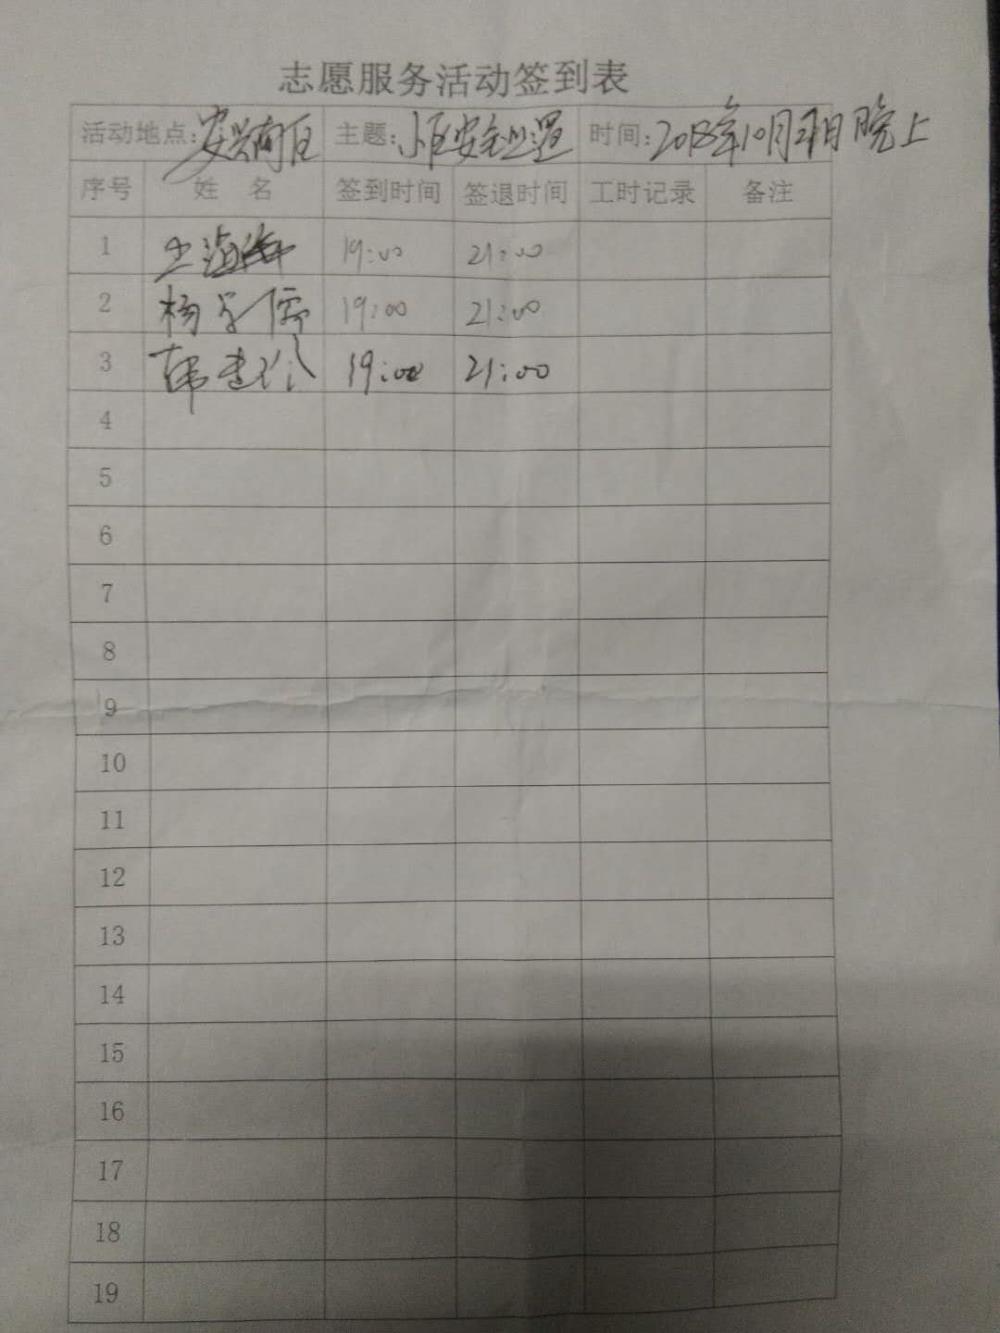 志愿服务活动签到表
活动地点: 安兴南区 主题: 小区安全巡逻 时间: 2018年10月21日晚上
序号 姓名 签到时间 签退时间 工时记录 备注
1 19:00 21:00
2 杨 儒 19:00 21:00
3 韩 19:00 21:00
4
5
6
7
8
9
10
11
12
13
14
15
16
17
18
19